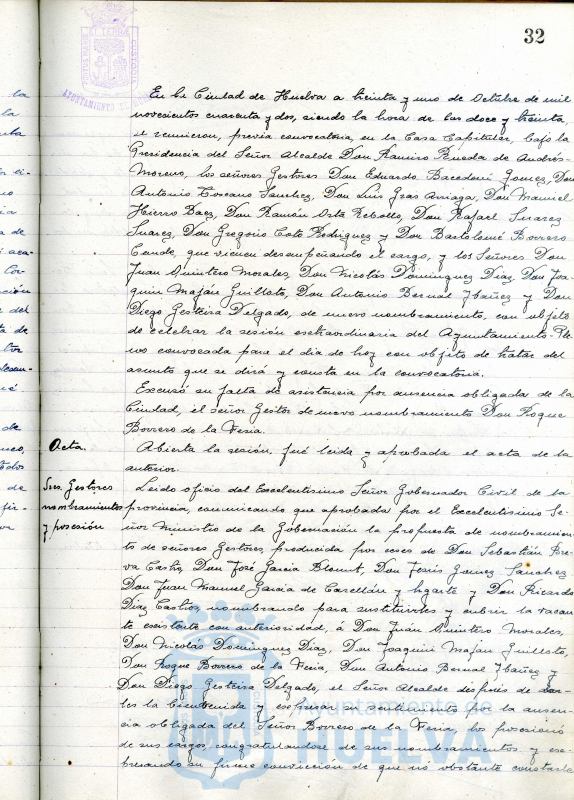 32
En la Ciudad de Huelva a treinta y uno de Octubre de mil
novecientos cuarenta y dos, siendo la hora de las doce y treinta,
se reunieron, previa convocatoria, en la Casa Capitular, bajo la
Presidencia del Señor Alcalde Don Ramiro Rueda de Andrés-
Moreno, los señores Gestores Don Eduardo Bacedoni Gomez, Don
Antonio Toscano Sanchez, Don Luis Gras Arriaga, Don Manuel
Hierro Baez, Don Ramón Orta Rebollo, Don Rafael Suarez
Suarez, Don Gregorio Coto Rodriguez y Don Bartolomé Borrero
Conde, que vienen desempeñando el cargo, y los Señores Don
Juan Quintero Morales, Don Nicolás Dominguez Diaz, Don Joa-
quin Mafán Guilloto, Don Antonio Bernal Ybañez y Don
Diego Gesteira Delgado, de nuevo nombramiento, con objeto
de celebrar la sesión extraordinaria del Ayuntamiento Ple-
no convocada para el dia de hoy con objeto de tratar del
asunto que se dirá y consta en la convocatoria.
Excusó su falta de asistencia por ausencia obligada de la
Ciudad, el señor Gestor de nuevo nombramiento Don Roque
Borrero de la Feria.
Acta.
Abierta la sesión, fué leida y aprobada el acta de la
anterior.
Sres. Gestores
nombramientos
y posesión
Leido oficio del Excelentisimo Señor Gobernador Civil de la
provincia, comunicando que aprobada por el Excelentisimo Se-
ñor Ministro de la Gobernación la propuesta de nombramien-
to de señores Gestores, producida por ceses de Don Sebastián Bre-
va Castro, Don José Garcia Blount, Don Jesús Gomez Sanchez
Don Juan Manuel Garcia de Castellón y Ugarte y Don Ricardo
Diaz Castro, nombrando para sustituirles y cubrir la vacan-
te existente con anterioridad, á Don Juan Quintero Morales,
Don Nicolás Dominguez Diaz, Don Joaquin Mafán Guilloto,
Don Roque Borrero de la Feria, Don Antonio Bernal Ybañez y
Don Diego Gesteira Delgado, el Señor Alcalde después de dar-
les la bienvenida y expresar su sentimiento por la ausen-
cia obligada del Señor Borrero de la Feria, los posesionó
de sus cargos, congratulandose de sus nombramientos y ex-
presando su firme convicción de que nó obstante constarle
Ayuntamiento de
HUELVA